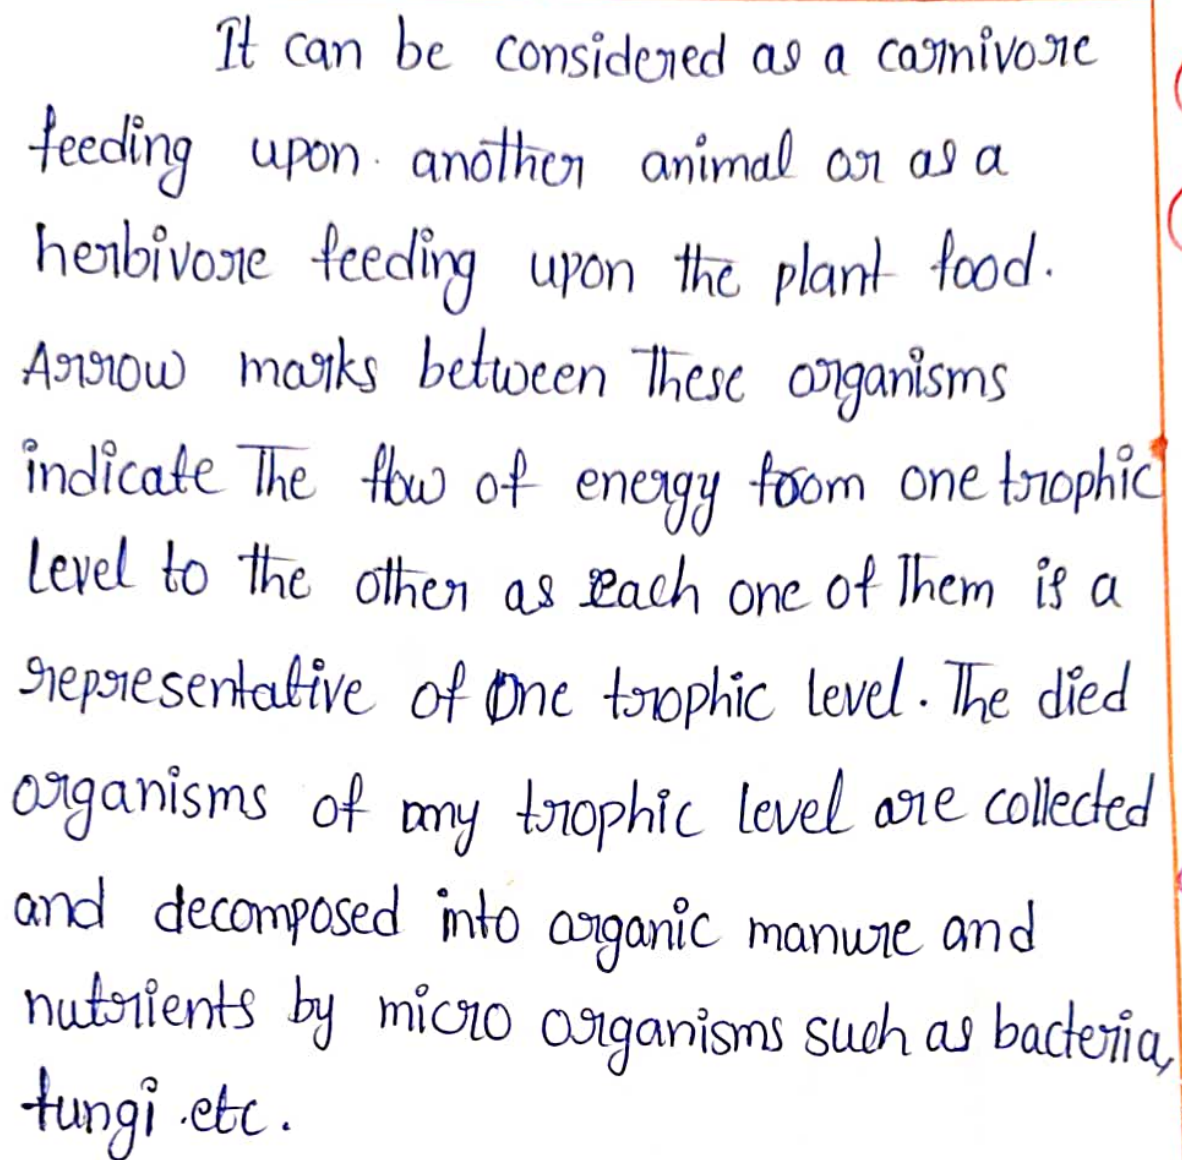 It can be considered as a carnivore
feeding upon another animal or as a
herbivore feeding upon the plant food.
Arrow marks between these organisms
indicate The flow of energy from one trophic
level to the other as each one of Them is a
representative of one trophic level. The died
organisms of any trophic level are collected
and decomposed into organic manure and
nutrients by micro organisms such as bacteria,
fungi .etc.